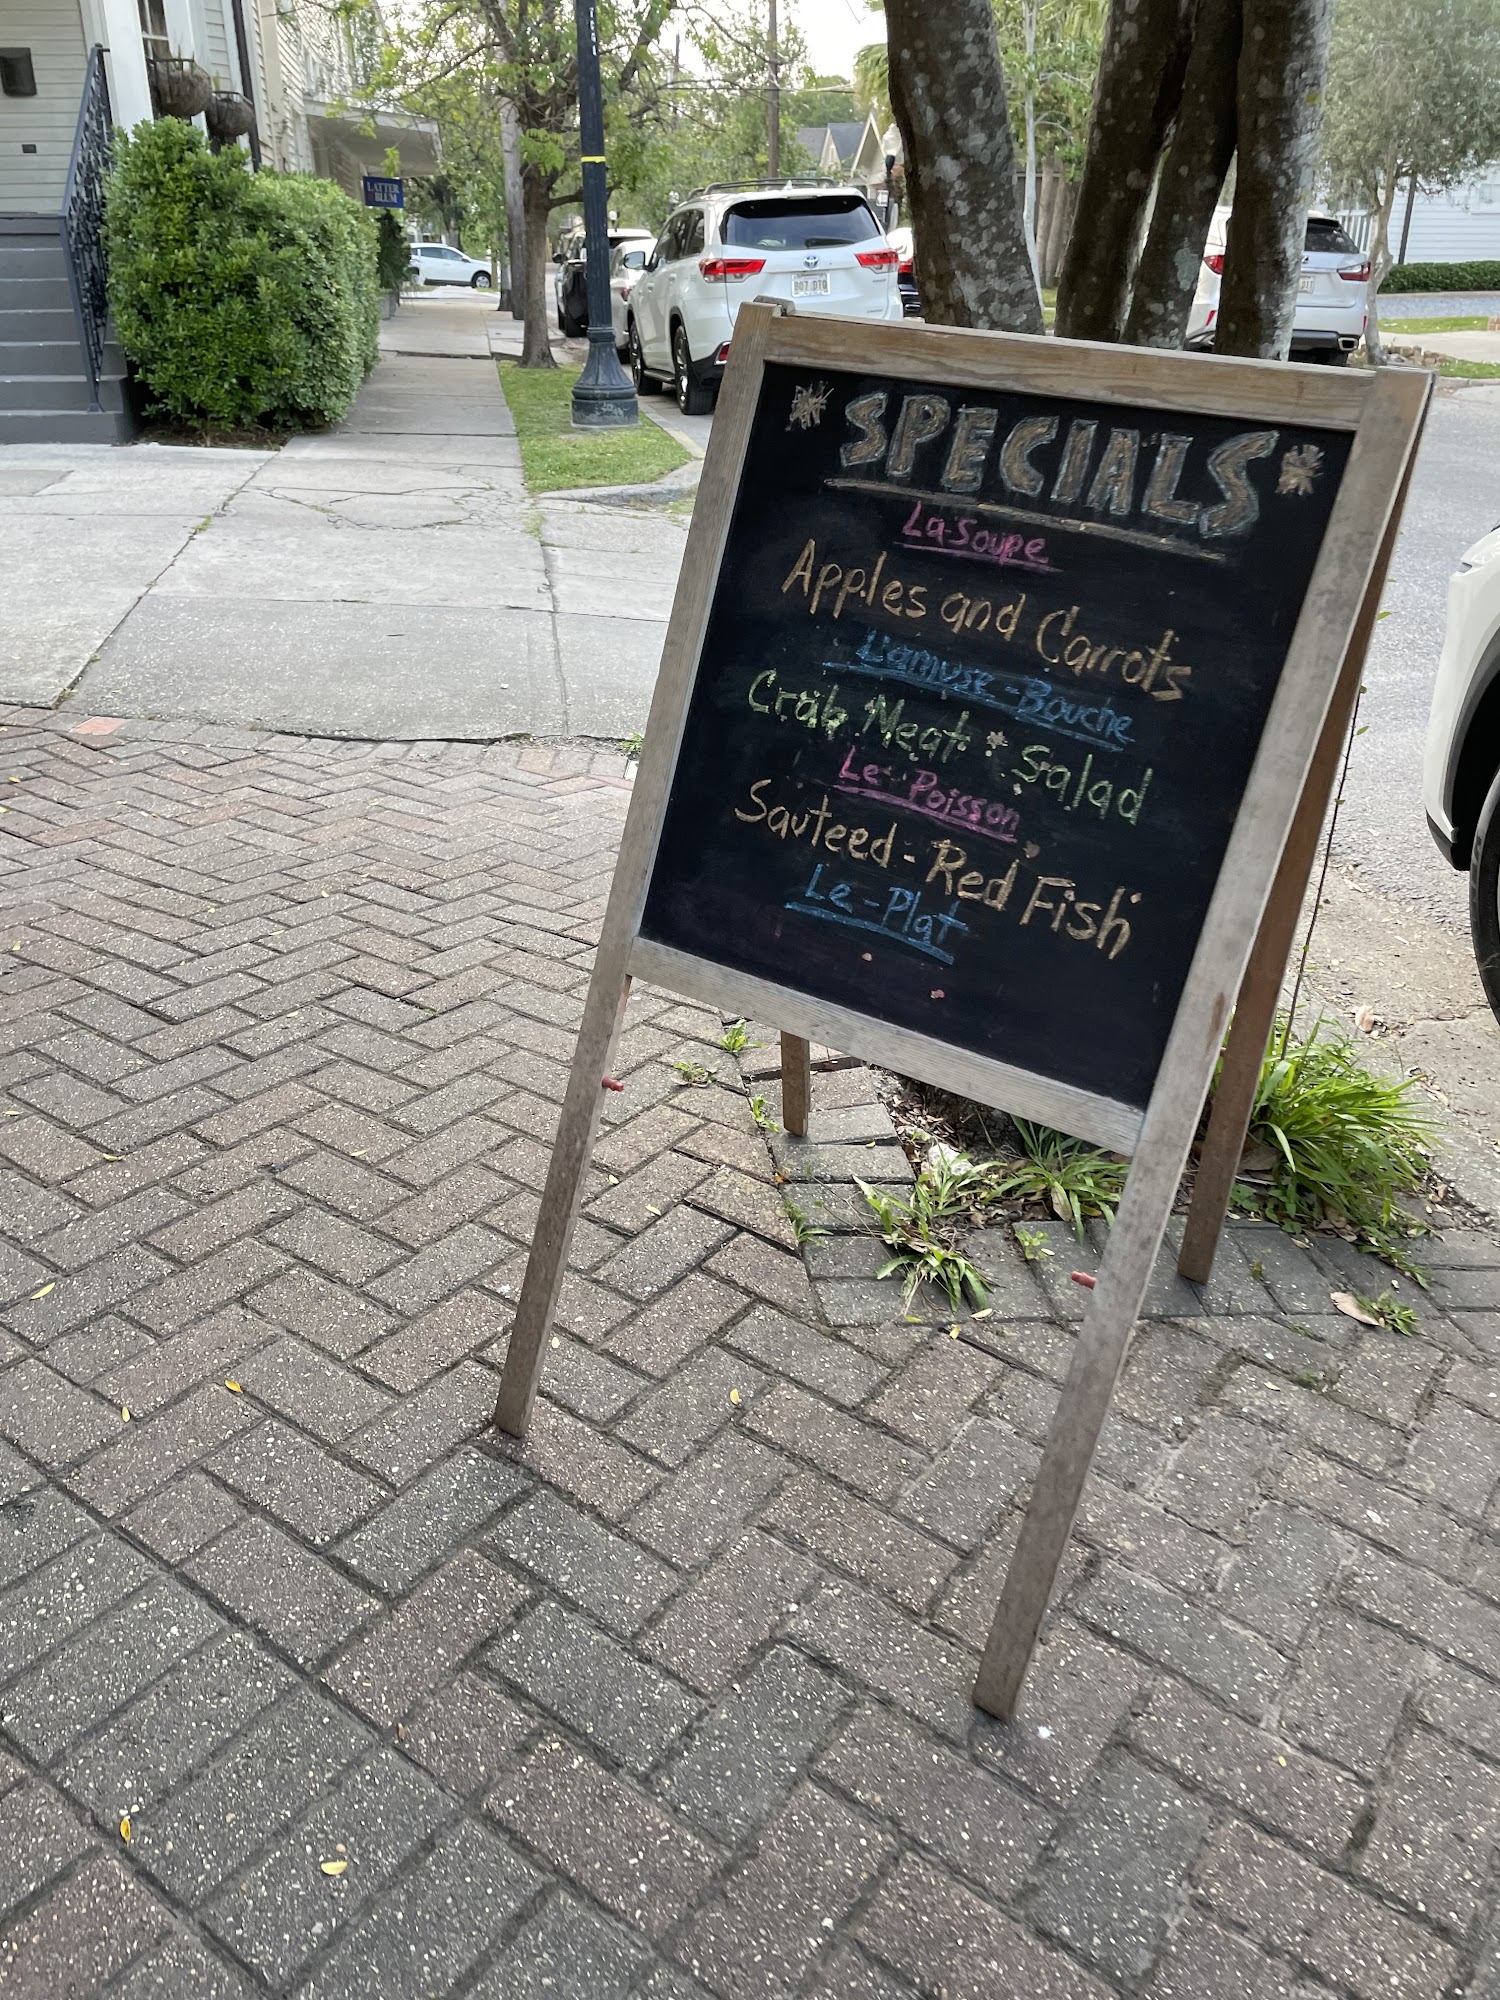 LATTER
& BLUM
807 DTQ
* SPECIALS *
La-Soupe
Apples and Carrots
L'amuse-Bouche
Crab Meat * Salad
Le-Poisson
Sauteed-Red Fish
Le-Plat